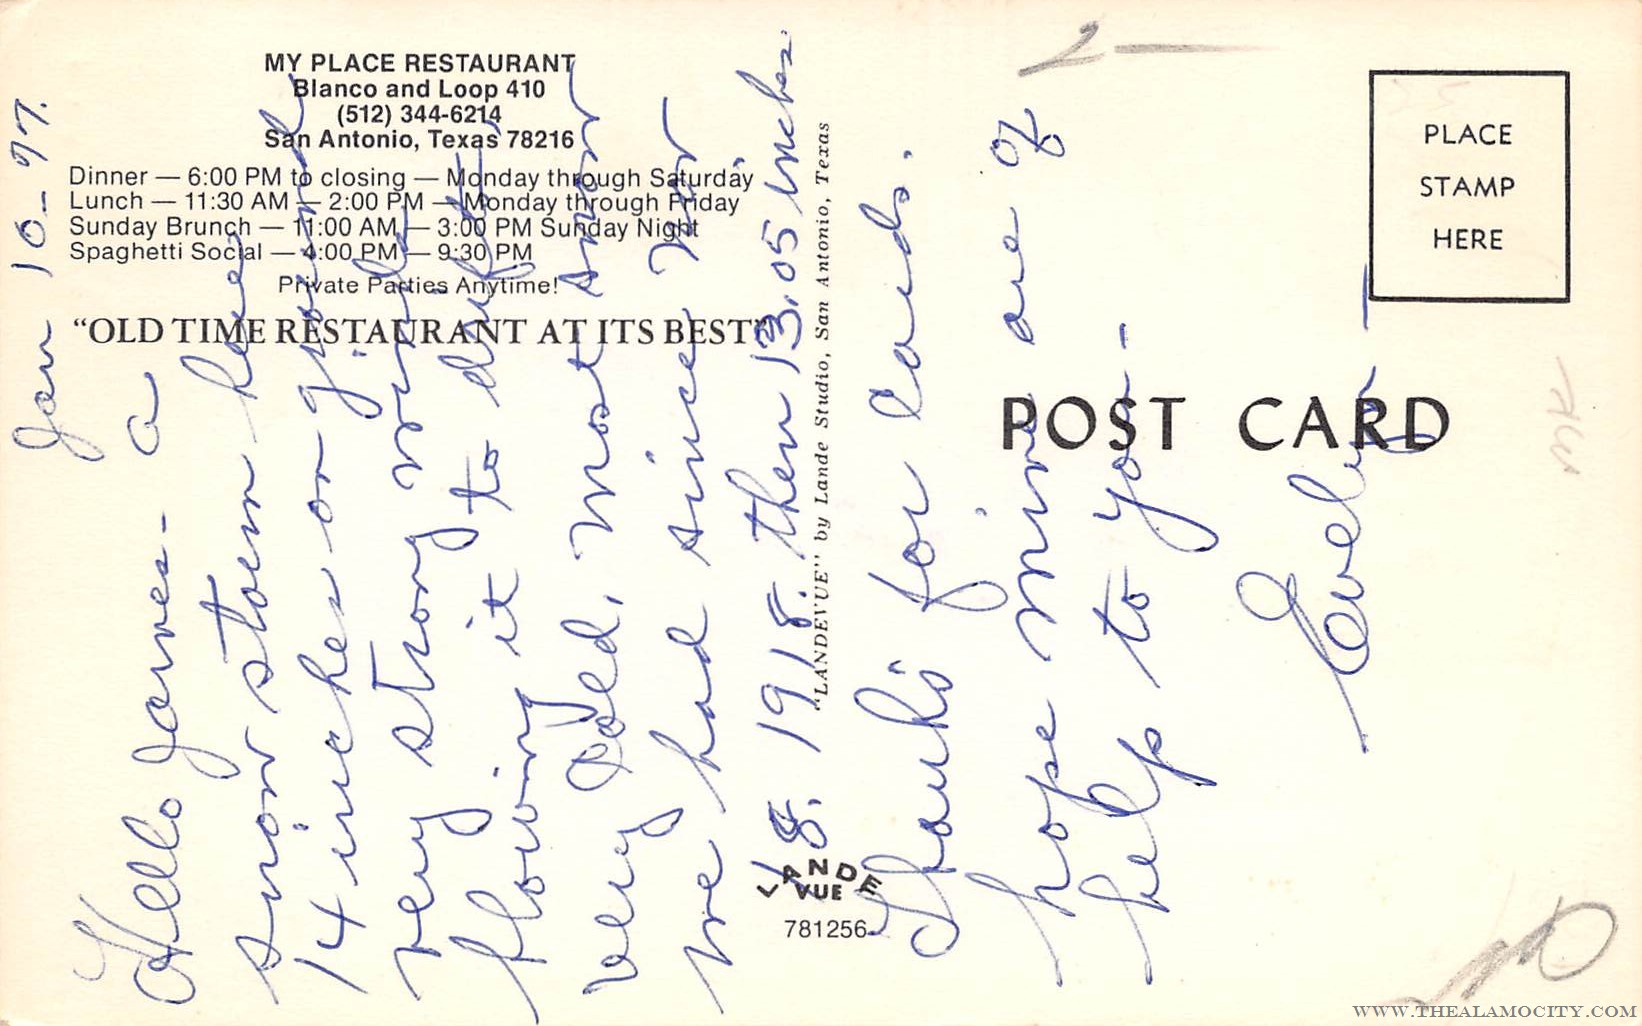 MY PLACE RESTAURANT
Blanco and Loop 410
(512) 344-6214
San Antonio, Texas 78216
Dinner — 6:00 PM to closing — Monday through Saturday
Lunch — 11:30 AM — 2:00 PM — Monday through Friday
Sunday Brunch — 11:00 AM — 3:00 PM Sunday Night
Spaghetti Social — 4:00 PM — 9:30 PM
Private Parties Anytime!
“OLD TIME RESTAURANT AT ITS BEST”
"LANDEVUE" by Lande Studio, San Antonio, Texas
LANDE
VUE
781256
PLACE
STAMP
HERE
POST CARD
2 —
Jan 10-77.
Hello Jones - a
snow storm here
14 inches on ground
very strong winds
flowing it to drift,
very cold, most snow
we had since Nov
18. 1918. then 13.05 inches
Thanks for cards.
hope mine are of
help to you -
Evelyn
WWW.THEALAMOCITY.COM